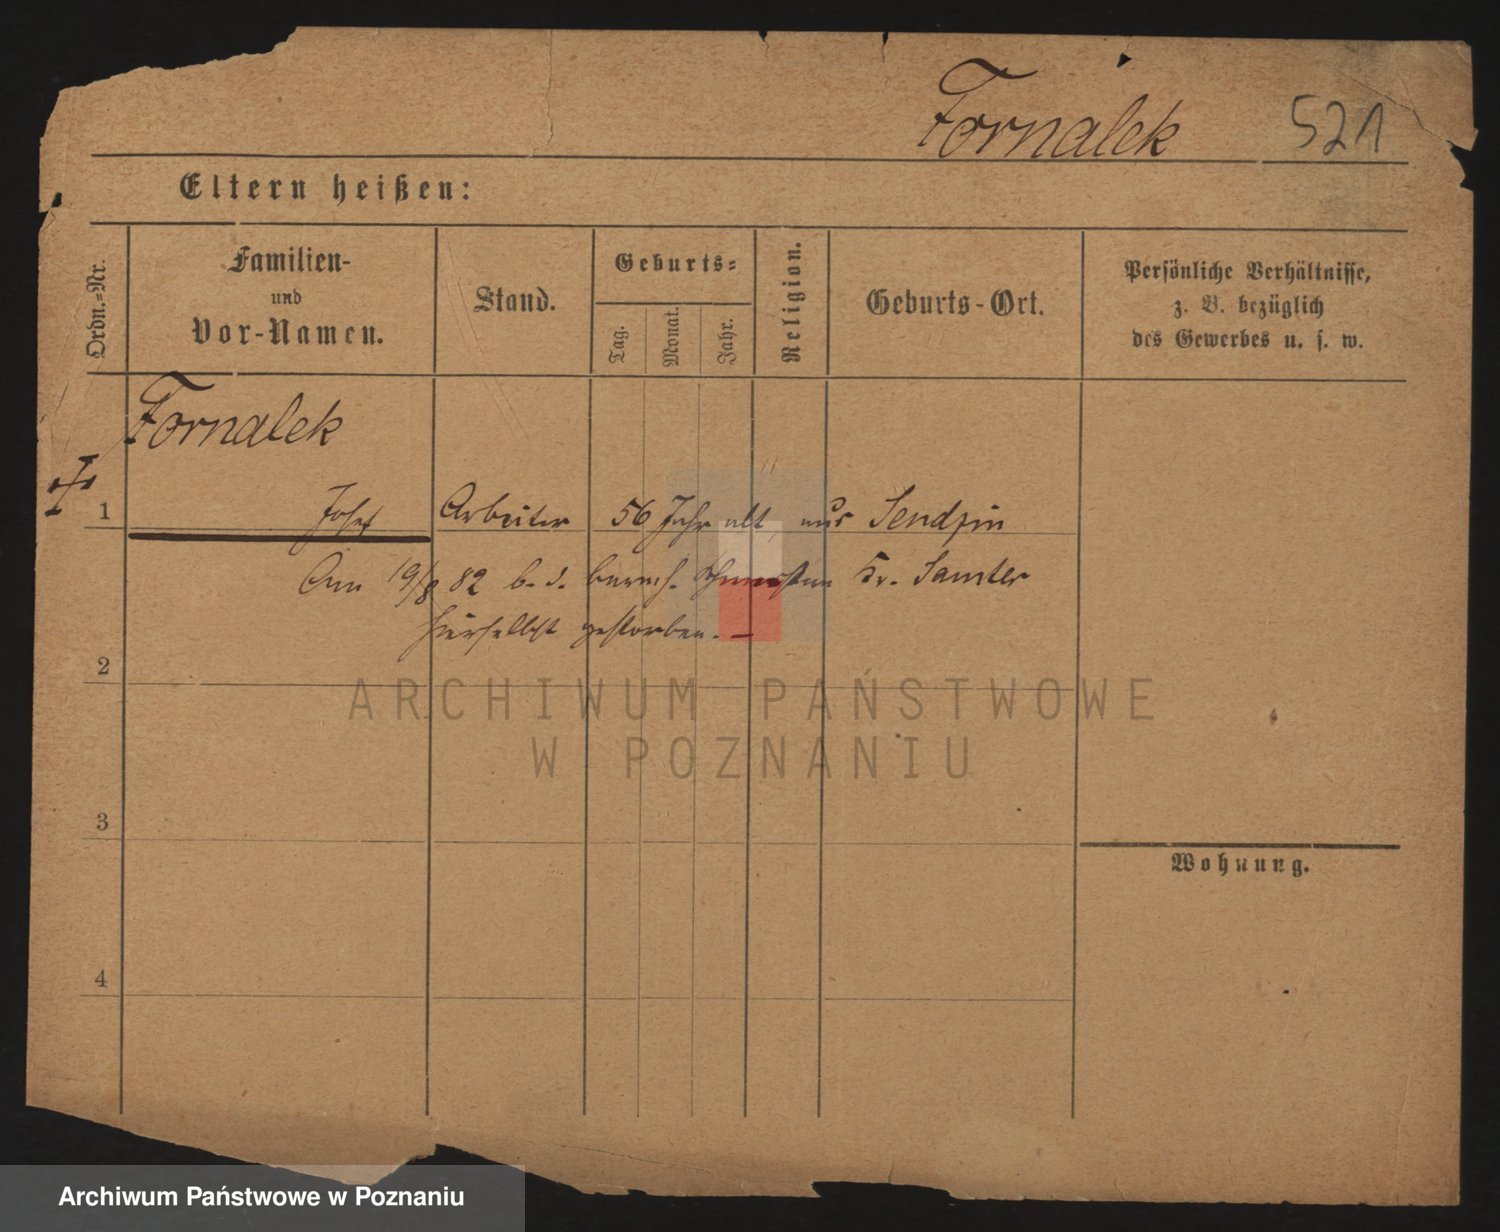 Fornalek 521
Eltern heißen:
Ordn.-Nr.
Familien-
und
Vor-Namen.
Stand.
Geburts-
Tag.
Monat.
Jahr.
Religion.
Geburts-Ort.
Persönliche Verhältnisse,
z. B. bezüglich
des Gewerbes u. s. w.
Fornalek
1 Josef Arbeiter 56 Jahr alt aus Sendzin
Am 19/8 82 b. d. barmh. Schwestern Kr. Samter
hierselbst gestorben. —
2
3
4
Wohnung.
ARCHIWUM PAŃSTWOWE
W POZNANIU
Archiwum Państwowe w Poznaniu